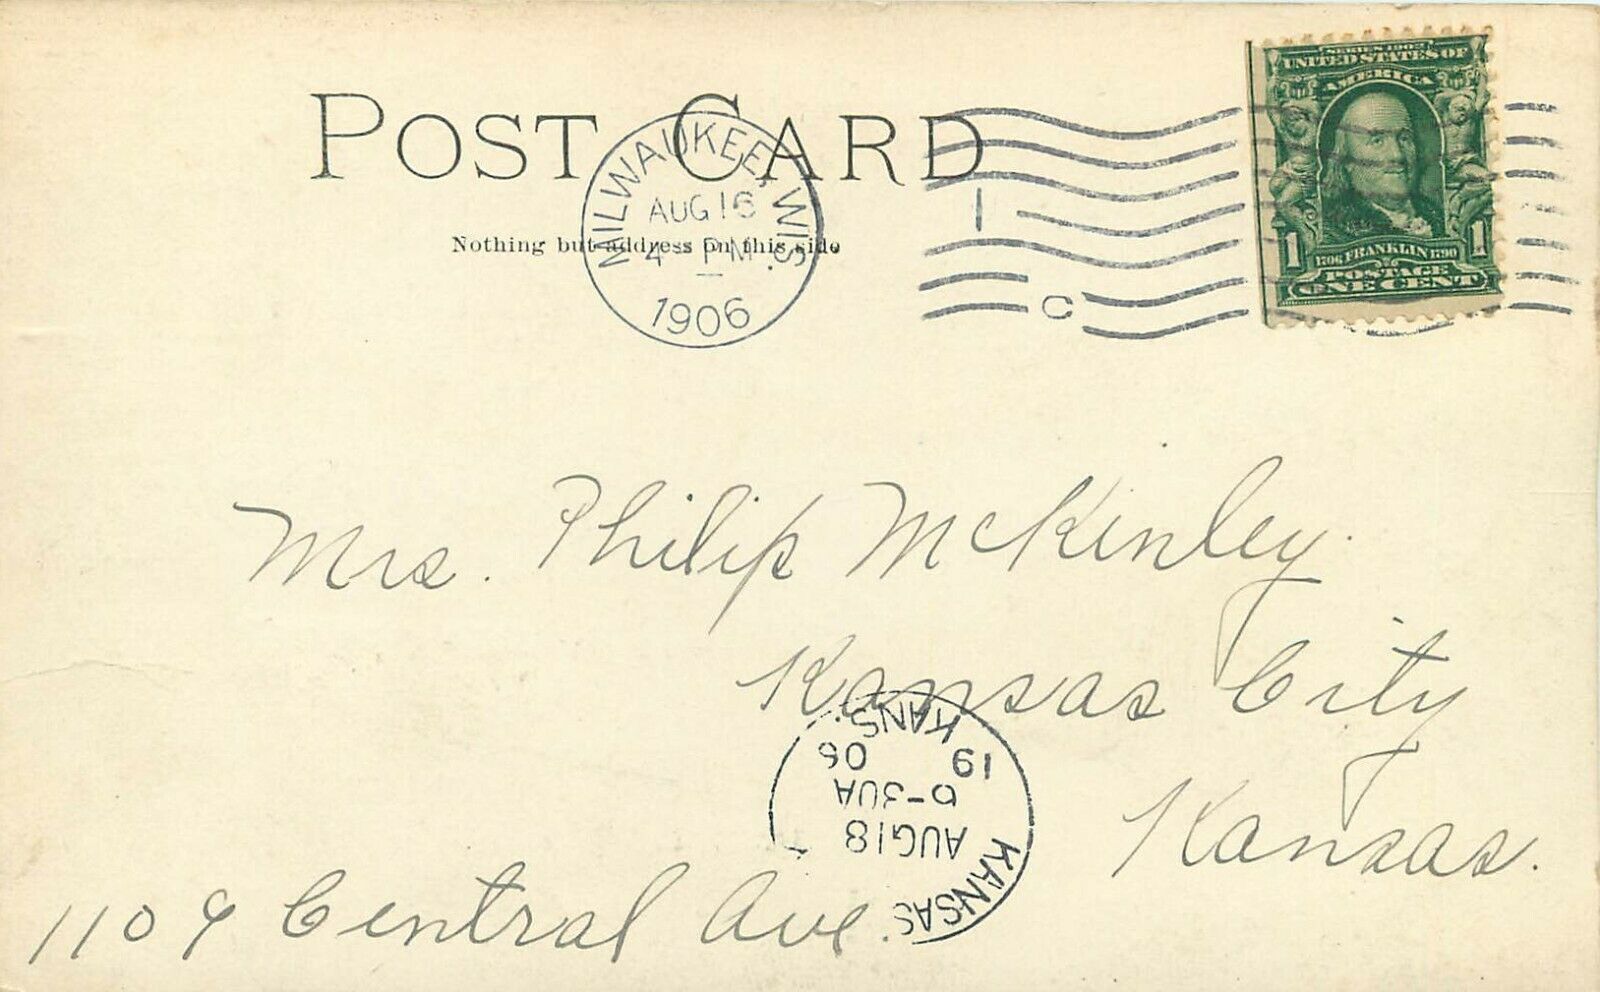 POST CARD
Nothing but address on this side
MILWAUKEE, WIS.
AUG 16
4 - PM
1906
1
C
SERIES 1902
UNITED STATES OF
AMERICA
1 1
1706 FRANKLIN 1790
POSTAGE
ONE CENT
Mrs. Philip McKinley.
Kansas City
Kansas.
1109 Central Ave.
KANSAS
AUG 18
-30A
19 06
KANS.